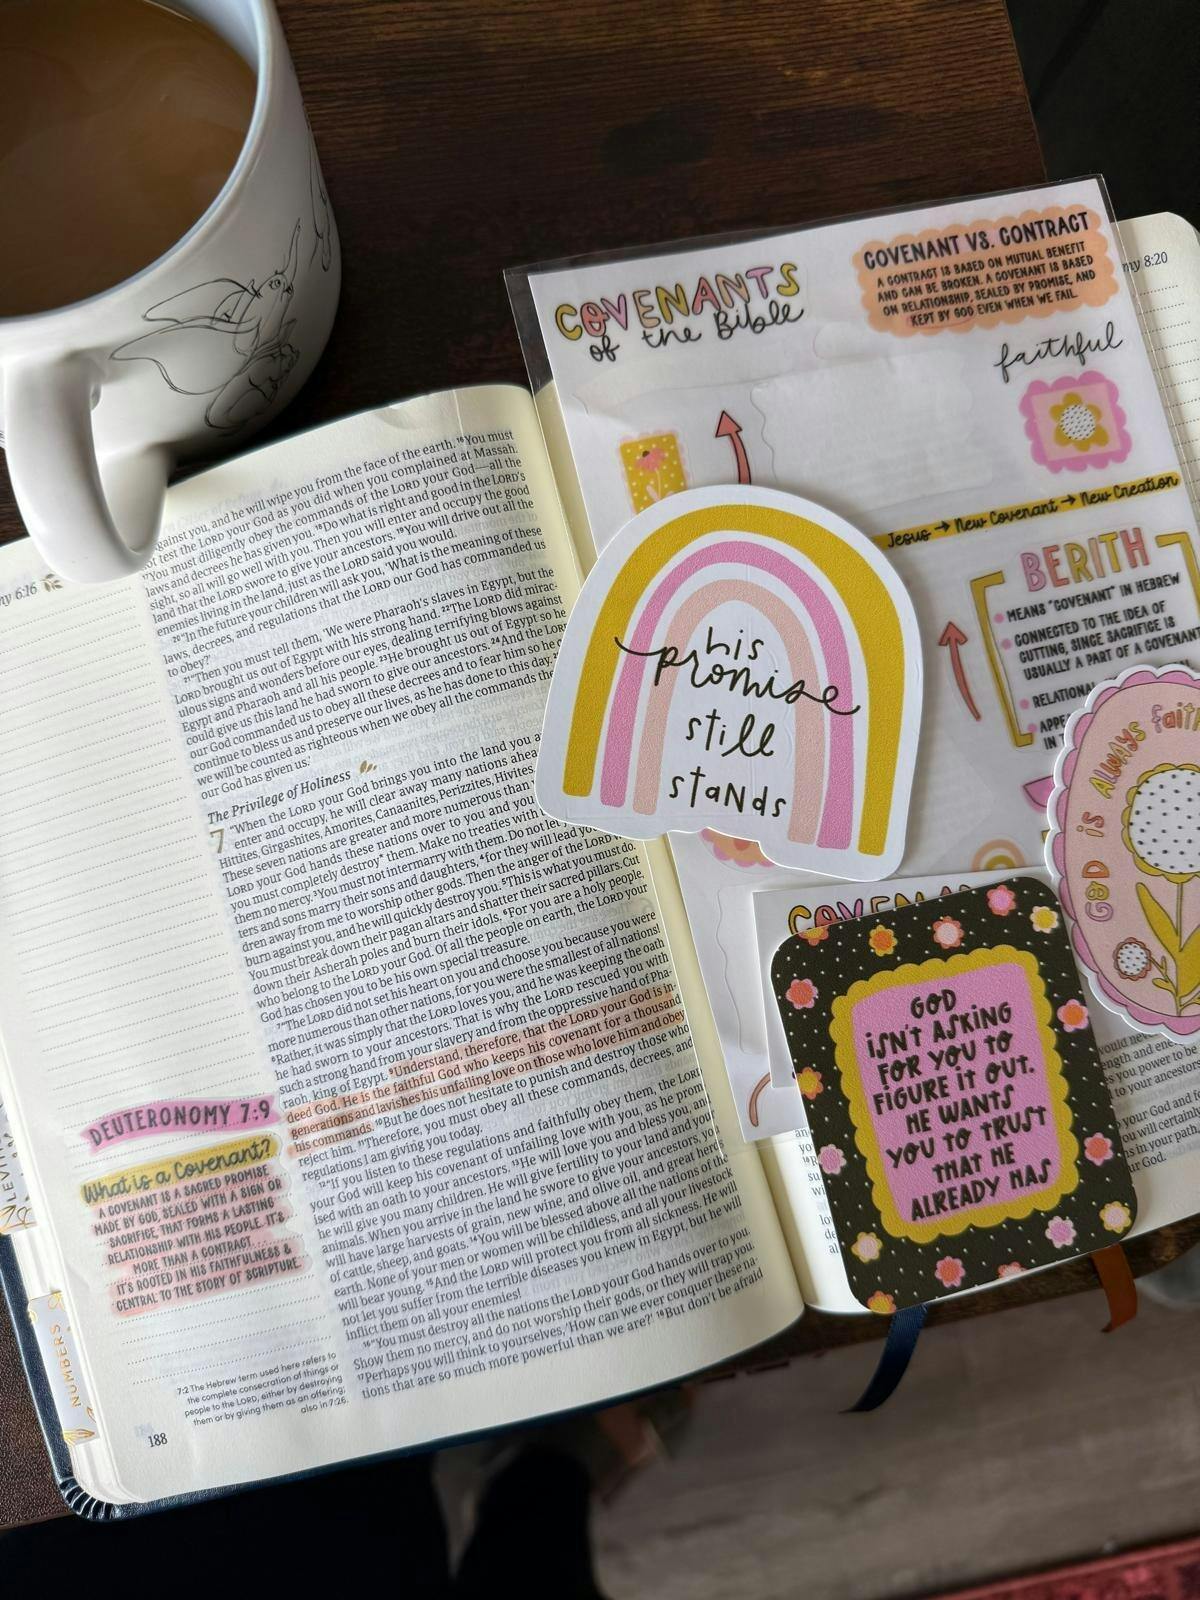 ny 6:16
against you, and he will wipe you from the face of the earth. 16You must
not test the LORD your God as you did when you complained at Massah.
17You must diligently obey the commands of the LORD your God—all the
laws and decrees he has given you. 18Do what is right and good in the LORD's
sight, so all will go well with you. Then you will enter and occupy the good
land that the LORD swore to give your ancestors. 19You will drive out all the
enemies living in the land, just as the LORD said you would.
20"In the future your children will ask you, 'What is the meaning of these
laws, decrees, and regulations that the LORD our God has commanded us
to obey?'
21"Then you must tell them, 'We were Pharaoh's slaves in Egypt, but the
LORD brought us out of Egypt with his strong hand. 22The LORD did mirac-
ulous signs and wonders before our eyes, dealing terrifying blows against
Egypt and Pharaoh and all his people. 23He brought us out of Egypt so he
could give us this land he had sworn to give our ancestors. 24And the LORD
our God commanded us to obey all these decrees and to fear him so he c
continue to bless us and preserve our lives, as he has done to this day. 25
we will be counted as righteous when we obey all the commands the
our God has given us.'
The Privilege of Holiness
7 "When the LORD your God brings you into the land you a
enter and occupy, he will clear away many nations ahea
Hittites, Girgashites, Amorites, Canaanites, Perizzites, Hivites,
These seven nations are greater and more numerous than
LORD your God hands these nations over to you and you
you must completely destroy* them. Make no treaties with
them no mercy. 3You must not intermarry with them. Do not let
ters and sons marry their sons and daughters, 4for they will lead you
dren away from me to worship other gods. Then the anger of the LORD
burn against you, and he will quickly destroy you. 5This is what you must do.
You must break down their pagan altars and shatter their sacred pillars. Cut
down their Asherah poles and burn their idols. 6For you are a holy people,
who belong to the LORD your God. Of all the people on earth, the LORD your
God has chosen you to be his own special treasure.
7"The LORD did not set his heart on you and choose you because you were
more numerous than other nations, for you were the smallest of all nations!
8Rather, it was simply that the LORD loves you, and he was keeping the oath
he had sworn to your ancestors. That is why the LORD rescued you with
such a strong hand from your slavery and from the oppressive hand of Pha-
raoh, king of Egypt. 9Understand, therefore, that the LORD your God is in-
deed God. He is the faithful God who keeps his covenant for a thousand
generations and lavishes his unfailing love on those who love him and obey
his commands. 10But he does not hesitate to punish and destroy those who
reject him. 11Therefore, you must obey all these commands, decrees, and
regulations I am giving you today.
12"If you listen to these regulations and faithfully obey them, the LORD
your God will keep his covenant of unfailing love with you, as he prom-
ised with an oath to your ancestors. 13He will love you and bless you, and
he will give you many children. He will give fertility to your land and your
animals. When you arrive in the land he swore to give your ancestors, you
will have large harvests of grain, new wine, and olive oil, and great herds
of cattle, sheep, and goats. 14You will be blessed above all the nations of the
earth. None of your men or women will be childless, and all your livestock
will bear young. 15And the LORD will protect you from all sickness. He will
not let you suffer from the terrible diseases you knew in Egypt, but he will
inflict them on all your enemies!
16"You must destroy all the nations the LORD your God hands over to you.
Show them no mercy, and do not worship their gods, or they will trap you.
17Perhaps you will think to yourselves, 'How can we ever conquer these na-
tions that are so much more powerful than we are?' 18But don't be afraid
DEUTERONOMY 7:9
What is a Covenant?
A COVENANT IS A SACRED PROMISE
MADE BY GOD, SEALED WITH A SIGN OR
SACRIFICE, THAT FORMS A LASTING
RELATIONSHIP WITH HIS PEOPLE. IT'S
MORE THAN A CONTRACT.
IT'S ROOTED IN HIS FAITHFULNESS &
CENTRAL TO THE STORY OF SCRIPTURE.
7:2 The Hebrew term used here refers to
the complete consecration of things or
people to the LORD, either by destroying
them or by giving them as an offering;
also in 7:26.
188
NUMBERS
COVENANTS
of the Bible
COVENANT VS. CONTRACT
A CONTRACT IS BASED ON MUTUAL BENEFIT
AND CAN BE BROKEN. A COVENANT IS BASED
ON RELATIONSHIP, SEALED BY PROMISE, AND
KEPT BY GOD EVEN WHEN WE FAIL.
ny 8:20
faithful
Jesus → New Covenant → New Creation
BERITH
MEANS "COVENANT" IN HEBREW
CONNECTED TO THE IDEA OF
CUTTING, SINCE SACRIFICE IS
USUALLY A PART OF A COVENANT
RELATIONA
APPE
IN T
his
promise
still
stands
GOD iS ALWAYS faith
COVEN
GOD
iSN'T ASKING
FOR YOU TO
FIGURE iT OUT.
HE WANTS
YOU TO TRUST
THAT HE
ALREADY HAS